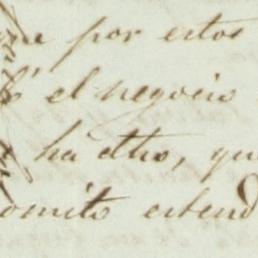 por estos
el negocio
ha dho, qu
omito estend